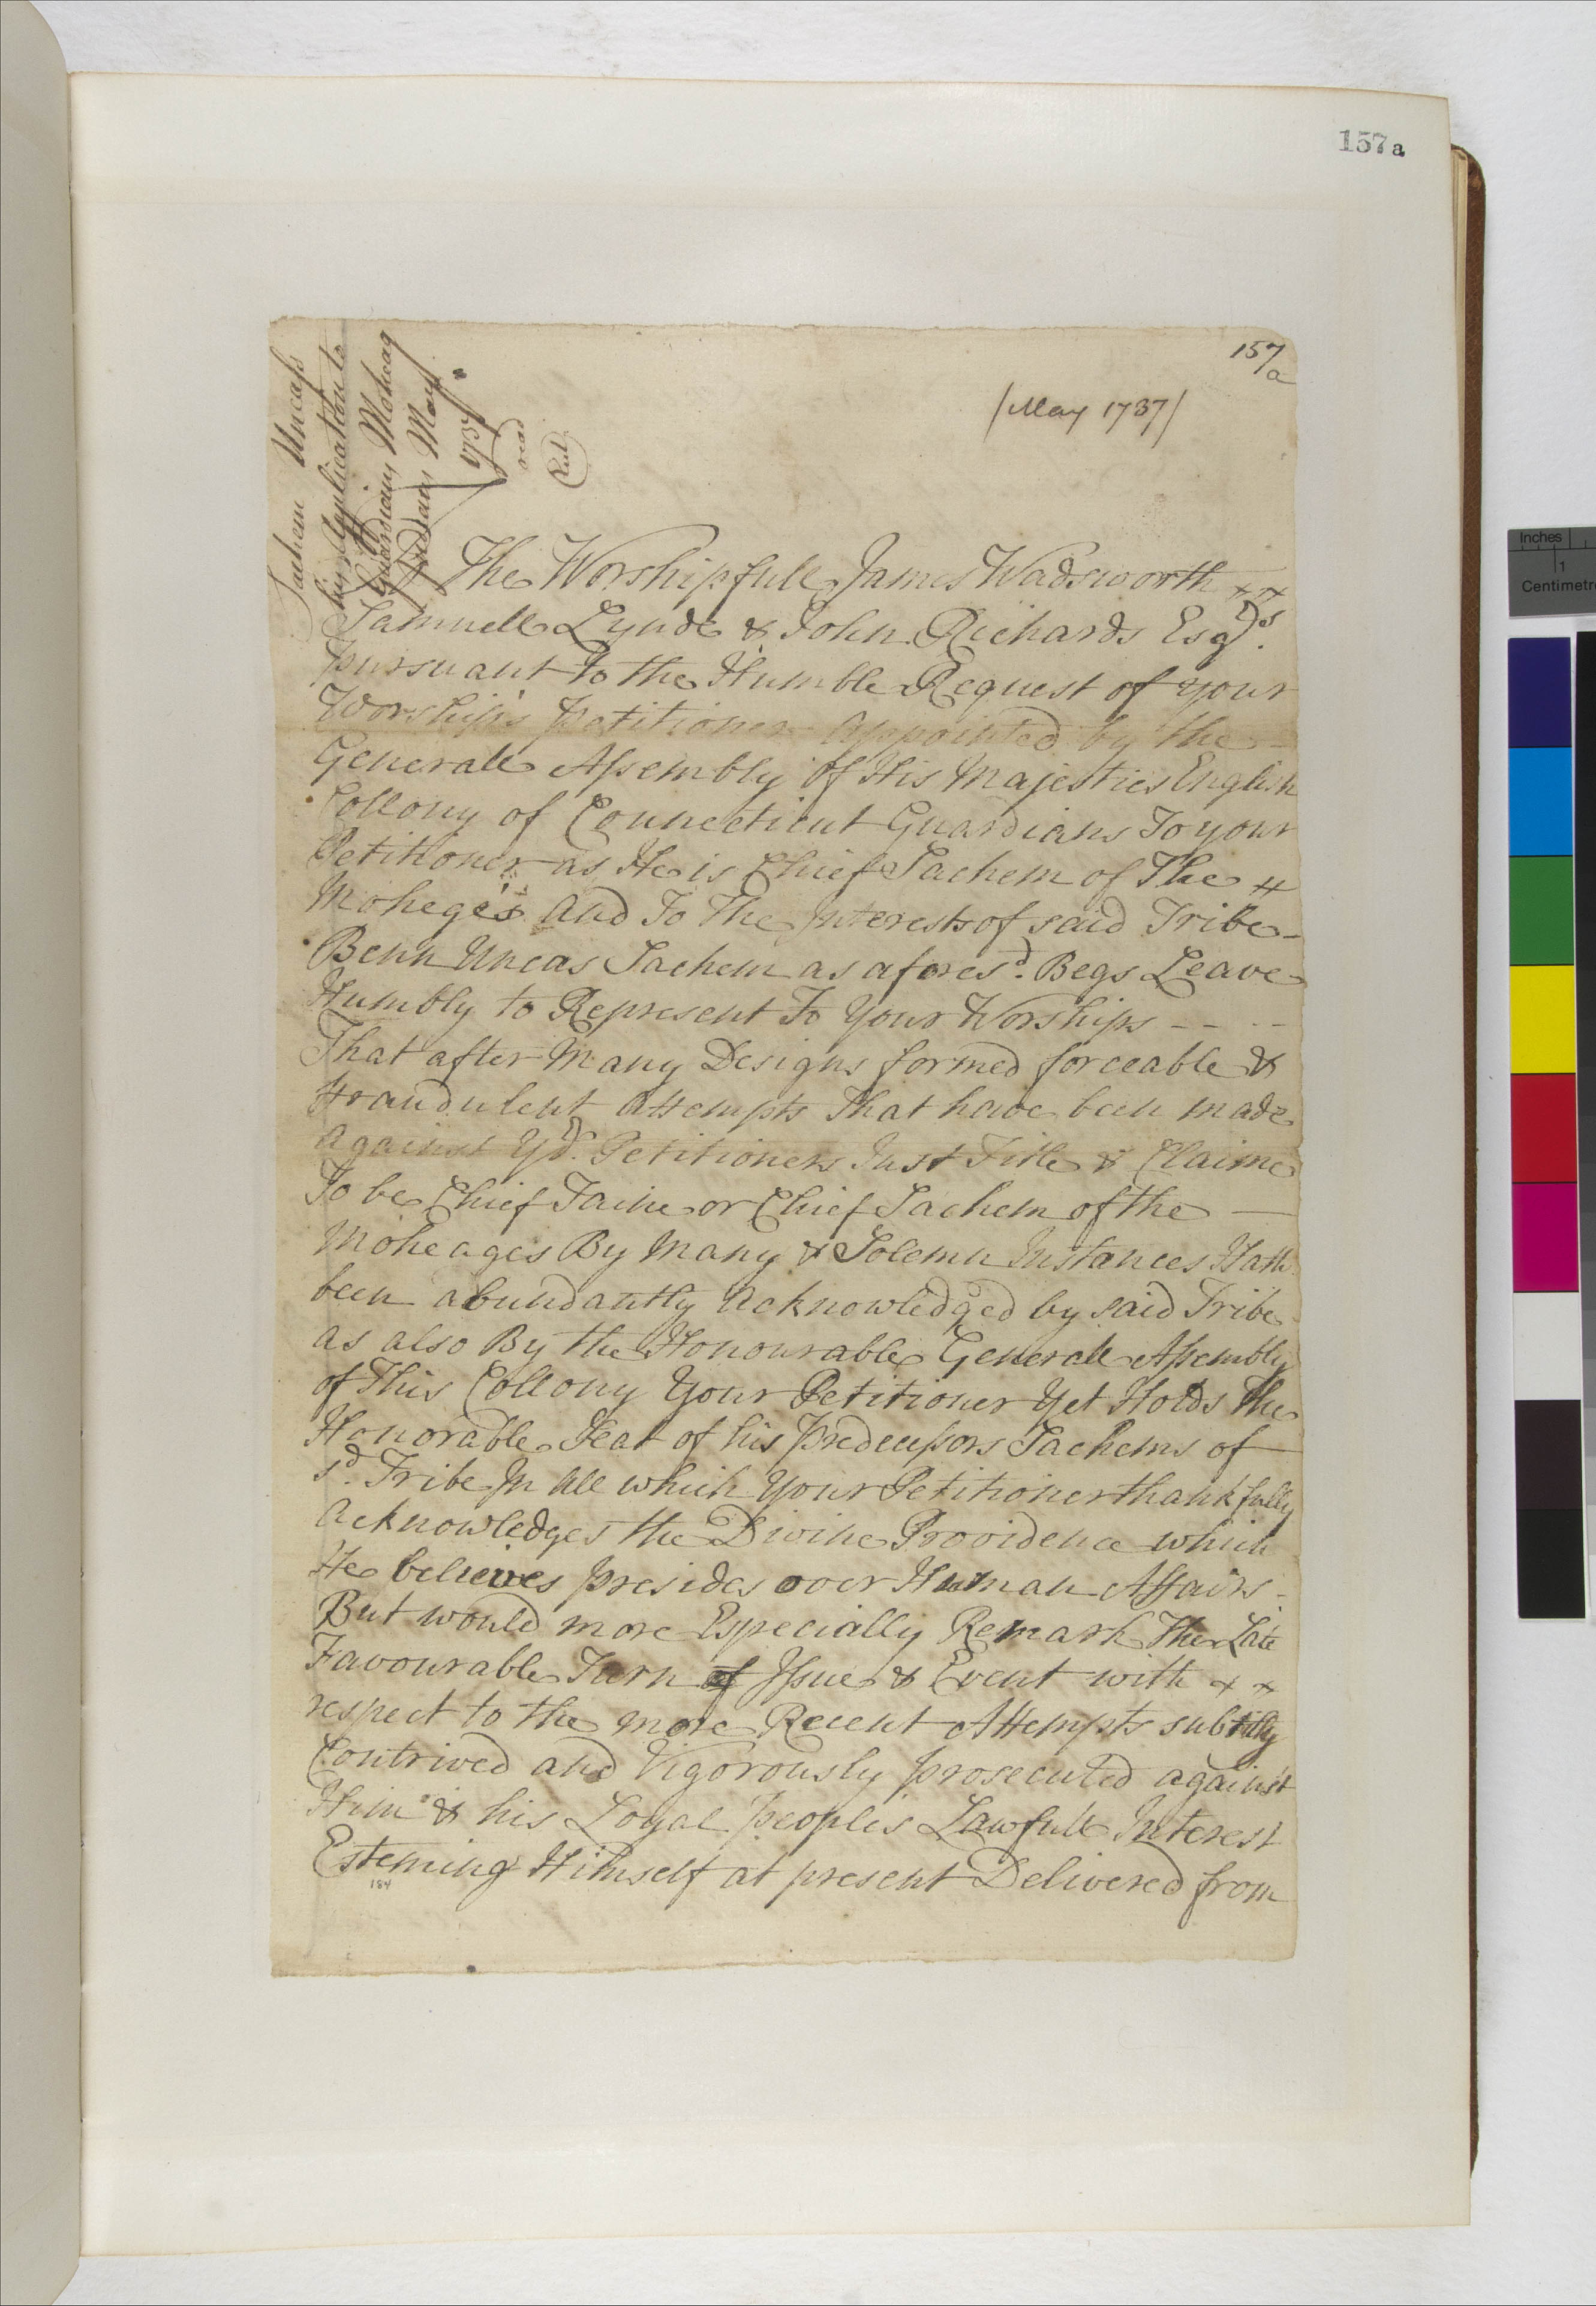 157a
157
a
/May 1737/
Sachem Uncass
his Application to
Guardians Moheag
Indians May
1737
read
Ent.
To The Worshipfull James Wadsworth
Samuell Lynde & John Richards Esqrs.
pursuant to the Humble Request of your
Worships petitioner Appointed by the -
Generall Assembly of His Majesties English
Collony of Connecticut Guardians To your
Petitioner as He is Chief Sachem of The
Moheges And To The Interests of said Tribe -
Benn Uncas Sachem as aforesd. Begs Leave
Humbly to Represent To Your Worships - - - -
That after Many Designs formed forceable &
fraudulent Attempts That have been made
against Yor. Petitioners Just Title & Claime
To be Chief Taine or Chief Sachem of the —
Moheages By Many & Solemn Instances Hath
been abundantly Acknowledged by said Tribe
as also By the Honourable Generall Assembly
of This Collony Your Petitioner Yet Holds The
Honorable Seat of his predecessors Sachems of
sd. Tribe In All which Your Petitioner thankfully
Acknowledges the Divine Providence which
He believes presides over Human Affairs -
But would more Especially Remark The Late
Favourable Turn of Issue & Event with
respect to the more Recent Attempts subtilly
Contrived and Vigorously prosecuted against
Him & his Loyal peoples Lawfull Interest
Esteming Himself at present Delivered from
184
Inches
1
Centimetre